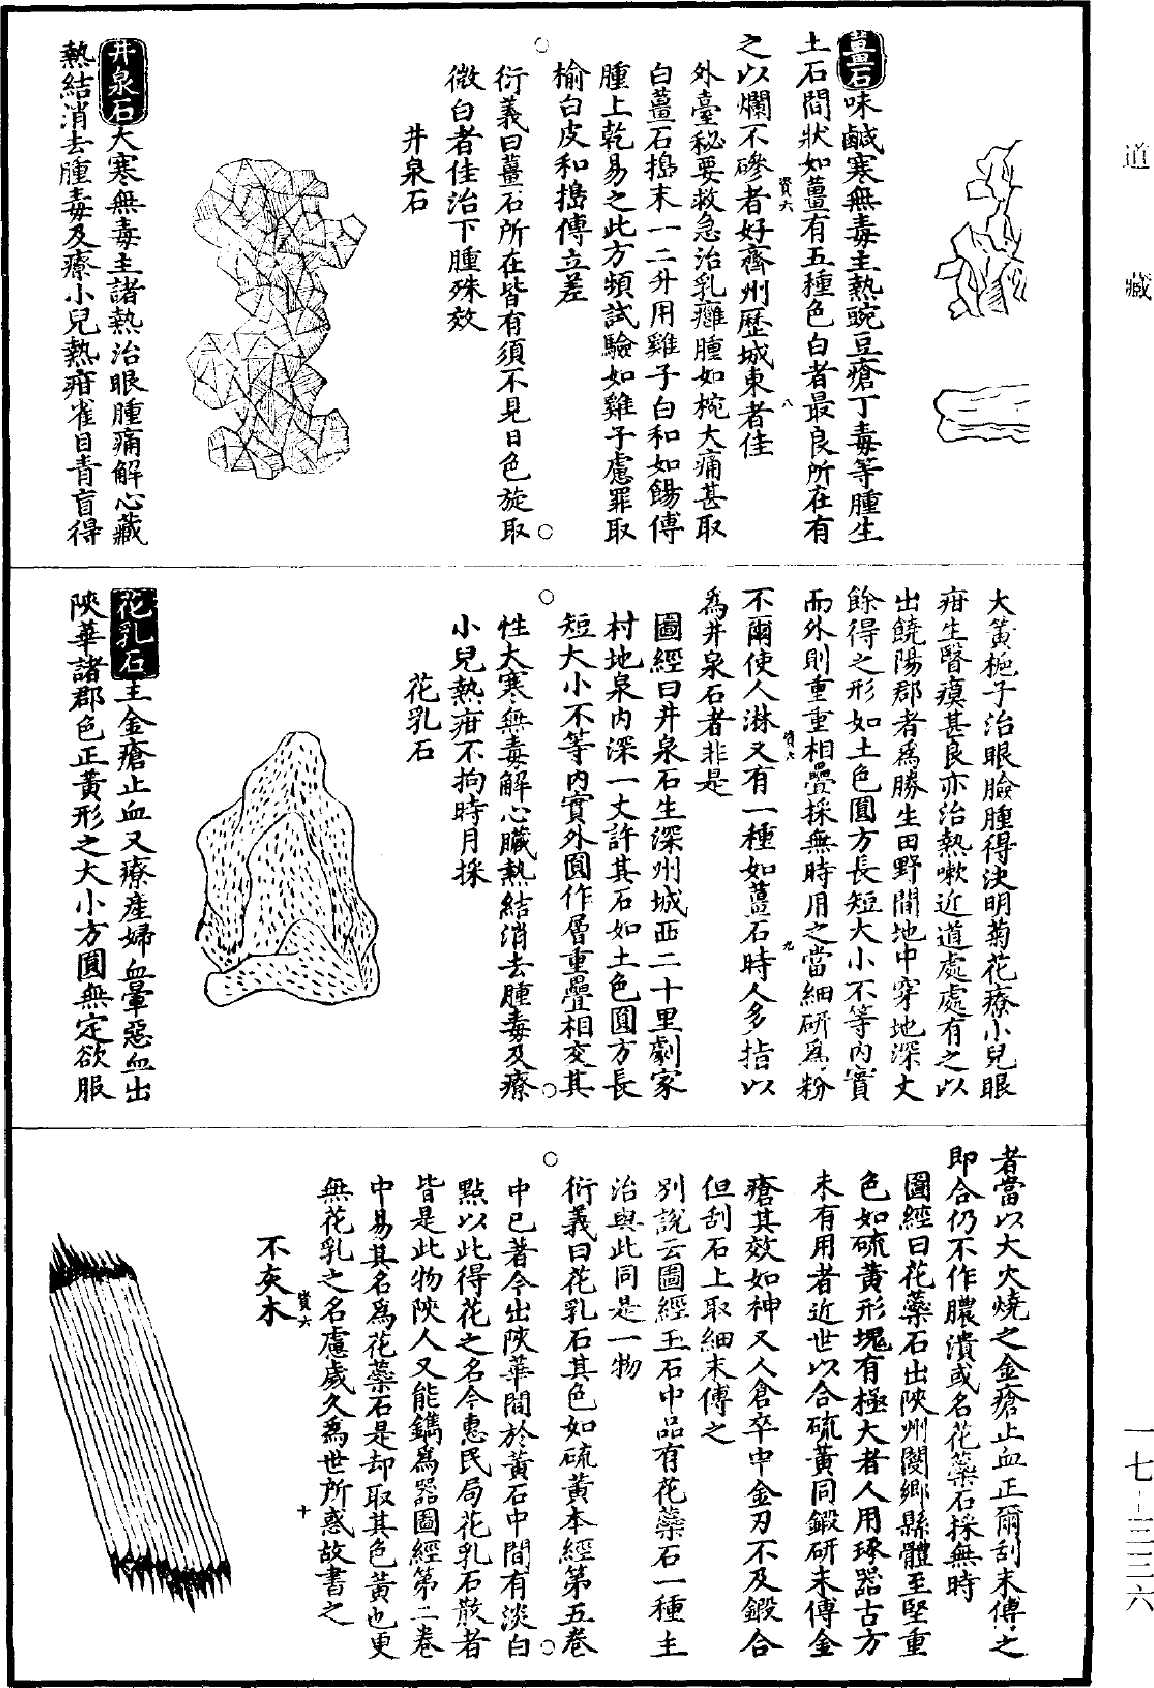 道藏
薑石味鹹寒無毒主熱豌豆瘡丁毒等腫生
土石間狀如薑有五種色白者最良所在有
之以爛不磣者好齊州歷城東者佳
外臺秘要救急治乳癰腫如椀大痛甚取
白薑石擣末一二升用雞子白和如餳傅
腫上乾易之此方頻試驗如雞子慮罪取
榆白皮和擣傅立差
衍義曰薑石所在皆有須不見日色旋取
微白者佳治下腫殊效
井泉石
井泉石大寒無毒主諸熱治眼腫痛解心藏
熱結消去腫毒及療小兒熱疳雀目青盲得
大黃梔子治眼臉腫得決明菊花療小兒眼
疳生翳瘼甚良亦治熱嗽近道處處有之以
出饒陽郡者為勝生田野間地中穿地深丈
餘得之形如土色圓方長短大小不等內實
而外則重重相疊採無時用之當細研為粉
不爾使人淋又有一種如薑石時人多指以
為井泉石者非是
圖經曰井泉石生深州城西二十里劇家
村地泉內深一丈許其石如土色圓方長
短大小不等內實外圓作層重疊相交其
性大寒無毒解心臟熱結消去腫毒及療
小兒熱疳不拘時月採
花乳石
花乳石主金瘡止血又療產婦血暈惡血出
陝華諸郡色正黃形之大小方圓無定欲服
者當以大火燒之金瘡止血正爾刮末傅之
即合仍不作膿潰或名花蘂石採無時
圖經曰花蘂石出陝州閿鄉縣體至堅重
色如硫黃形塊有極大者人用琢器古方
未有用者近世以合硫黃同鍛研末傅金
瘡其效如神又人倉卒中金刃不及鍛合
但刮石上取細末傅之
別說云圖經玉石中品有花蘂石一種主
治與此同是一物
衍義曰花乳石其色如硫黃本經第五卷
中已著今出陝華間於黃石中間有淡白
點以此得花之名今惠民局花乳石散者
皆是此物陝人又能鐫為器圖經第二卷
中易其名為花蘂石是却取其色黃也更
無花乳之名慮歲久為世所惑故書之
不灰木
一七-三三六